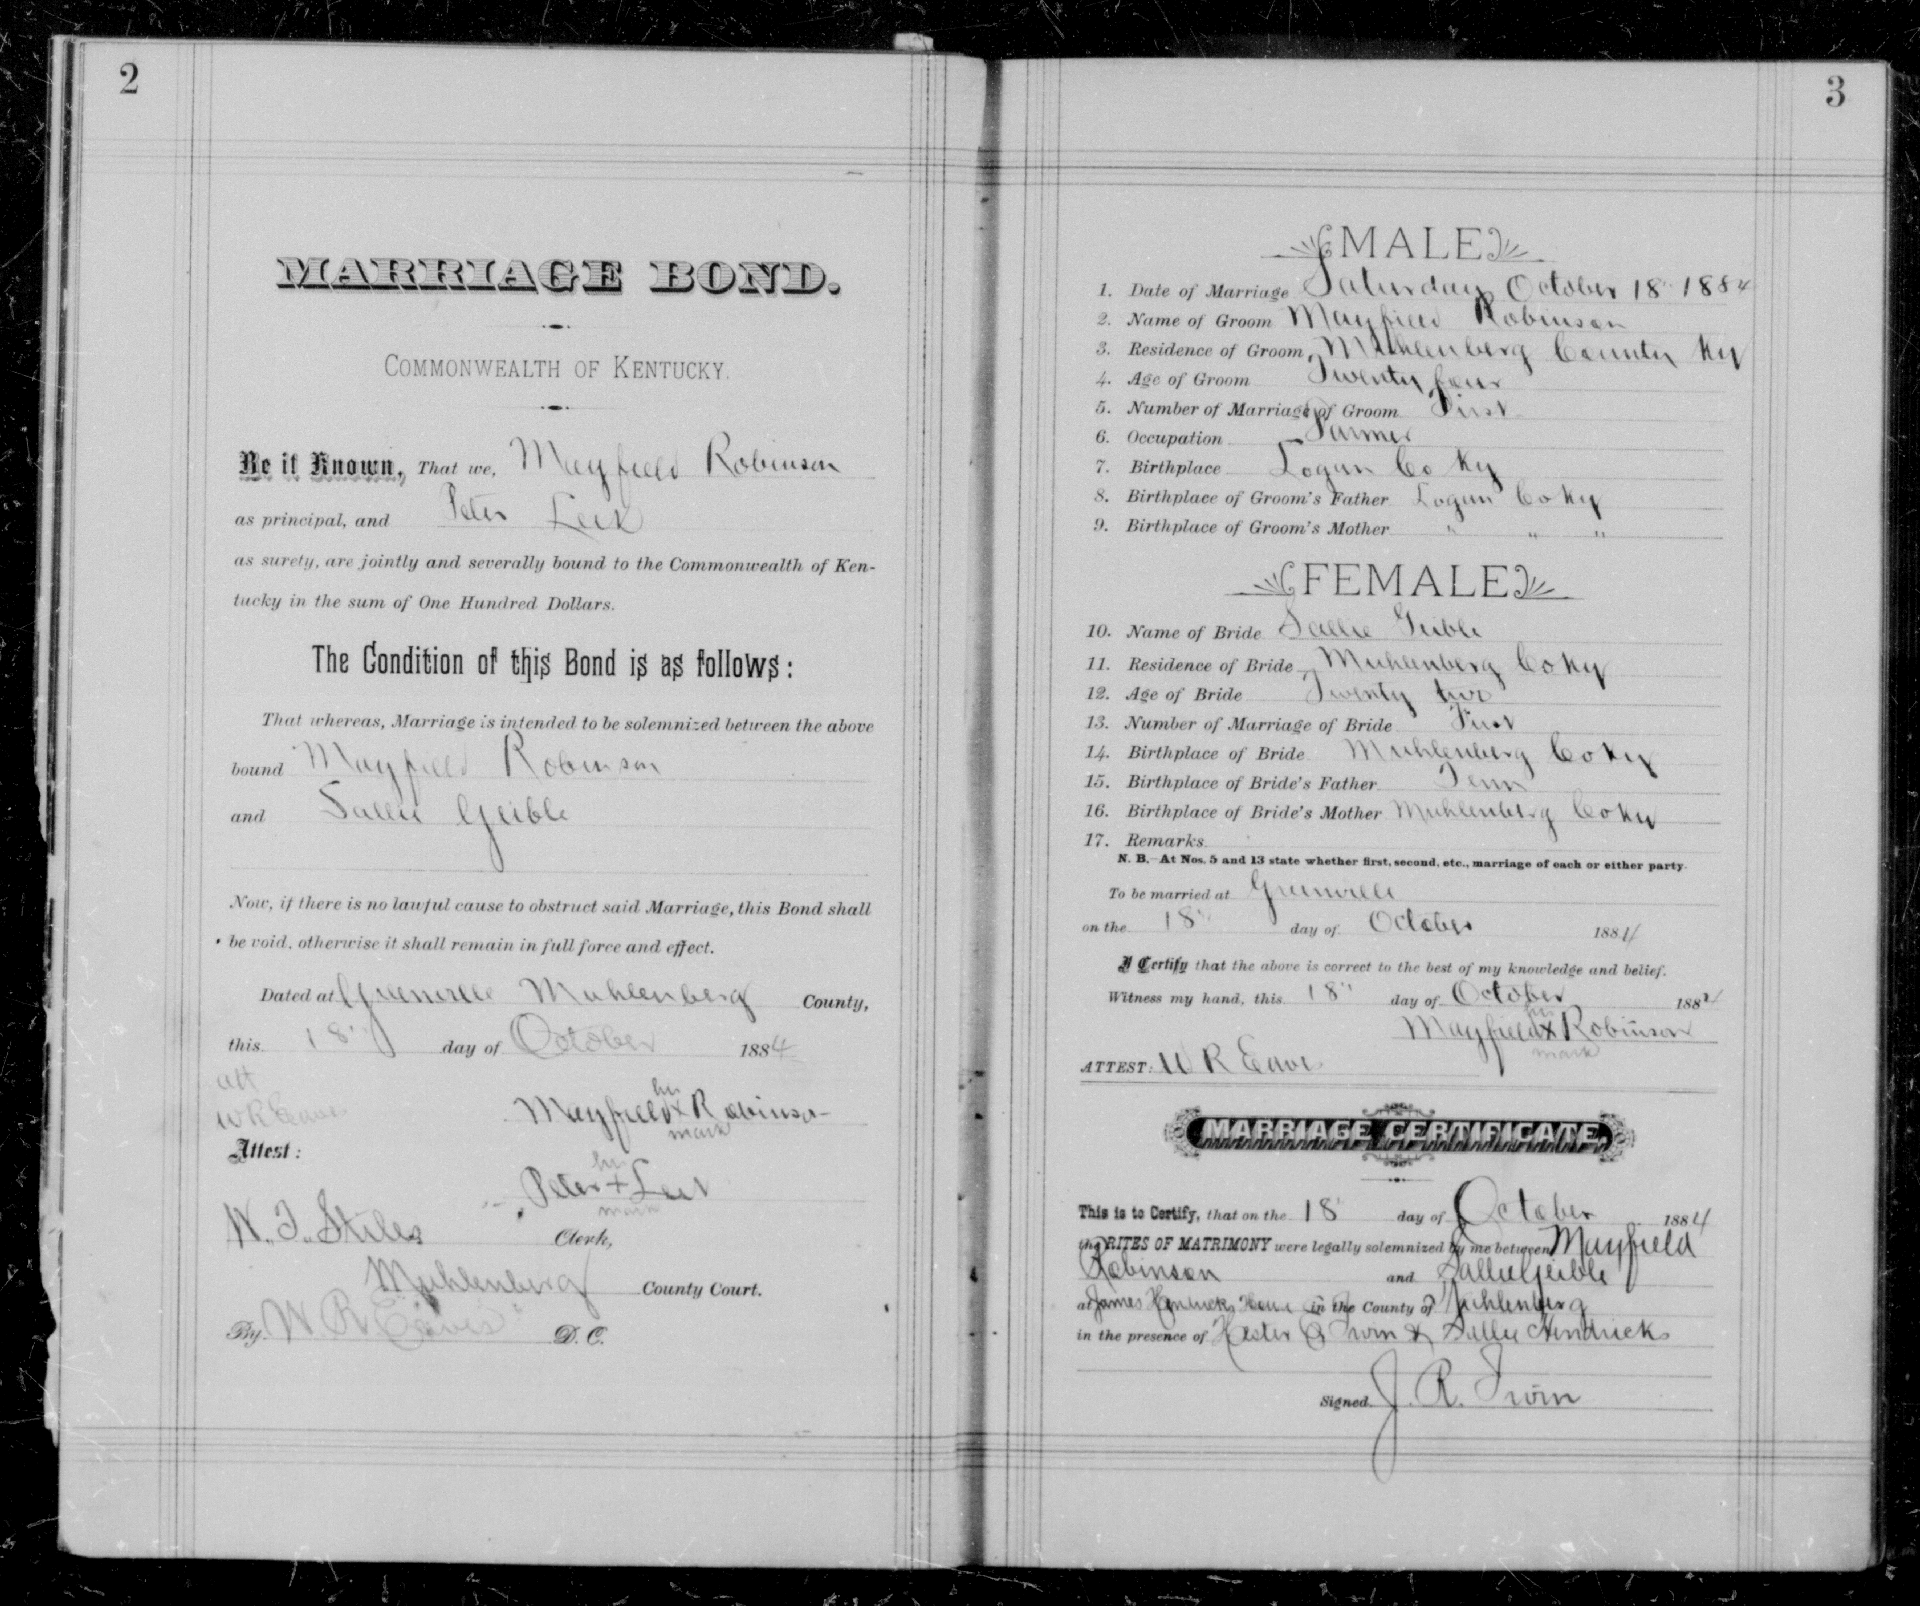 2
MARRIAGE BOND.
COMMONWEALTH OF KENTUCKY.
Be it Known, That we, Mayfield Robinson
as principal, and Peter
as surety, are jointly and severally bound to the Commonwealth of Ken-
tucky in the sum of One Hundred Dollars.
The Condition of this Bond is as follows:
That whereas, Marriage is intended to be solemnized between the above
bound Mayfield Robinson
and Sallie Geible
Now, if there is no lawful cause to obstruct said Marriage, this Bond shall
be void, otherwise it shall remain in full force and effect.
Dated at Greenville Muhlenberg County,
this 18" day of October 1884
att
W R Eaves
his
Mayfield x Robinson
mark
Attest:
his
Peter +
mark
W. T. Stiles Clerk,
Muhlenberg County Court.
By W R Eaves D. C.
3
MALE
1. Date of Marriage Saturday October 18" 1884
2. Name of Groom Mayfield Robinson
3. Residence of Groom Muhlenberg County Ky
4. Age of Groom Twenty four
5. Number of Marriage of Groom First
6. Occupation Farmer
7. Birthplace Logan Co Ky
8. Birthplace of Groom's Father Logan Co Ky
9. Birthplace of Groom's Mother " " "
FEMALE
10. Name of Bride Sallie Geible
11. Residence of Bride Muhlenberg Co Ky
12. Age of Bride Twenty two
13. Number of Marriage of Bride First
14. Birthplace of Bride Muhlenberg Co Ky
15. Birthplace of Bride's Father Tenn
16. Birthplace of Bride's Mother Muhlenberg Co Ky
17. Remarks
N. B.—At Nos. 5 and 13 state whether first, second, etc., marriage of each or either party.
To be married at Greenville
on the 18" day of October 1884
I Certify that the above is correct to the best of my knowledge and belief.
Witness my hand, this 18" day of October 1884
his
Mayfield x Robinson
mark
ATTEST: W R Eaves
MARRIAGE CERTIFICATE.
This is to Certify, that on the 18 day of October 1884
the RITES OF MATRIMONY were legally solemnized by me between Mayfield
Robinson and Sallie Geible
at James Hendricks House in the County of Muhlenberg
in the presence of Hester A Irwin & Sallie Hendricks
Signed. J. R. Irwin